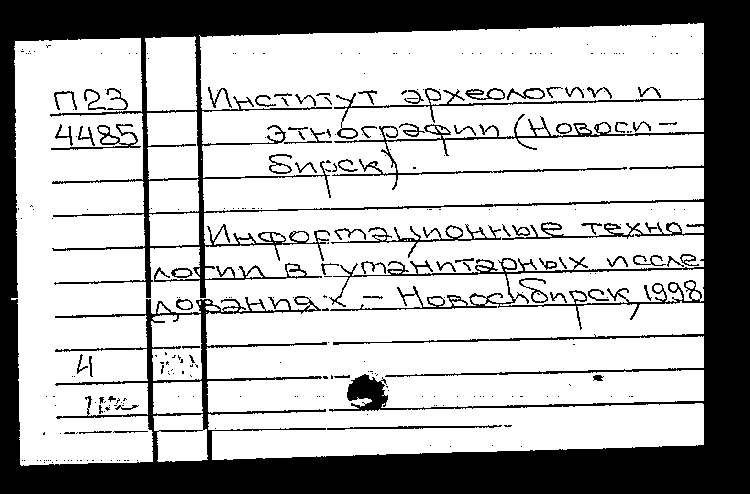 П23 Институт археологии и
4485 этнографии (Новоси-
бирск).
Информационные техно-
логии в гуманитарных иссле-
дованиях. – Новосибирск, 1998
4